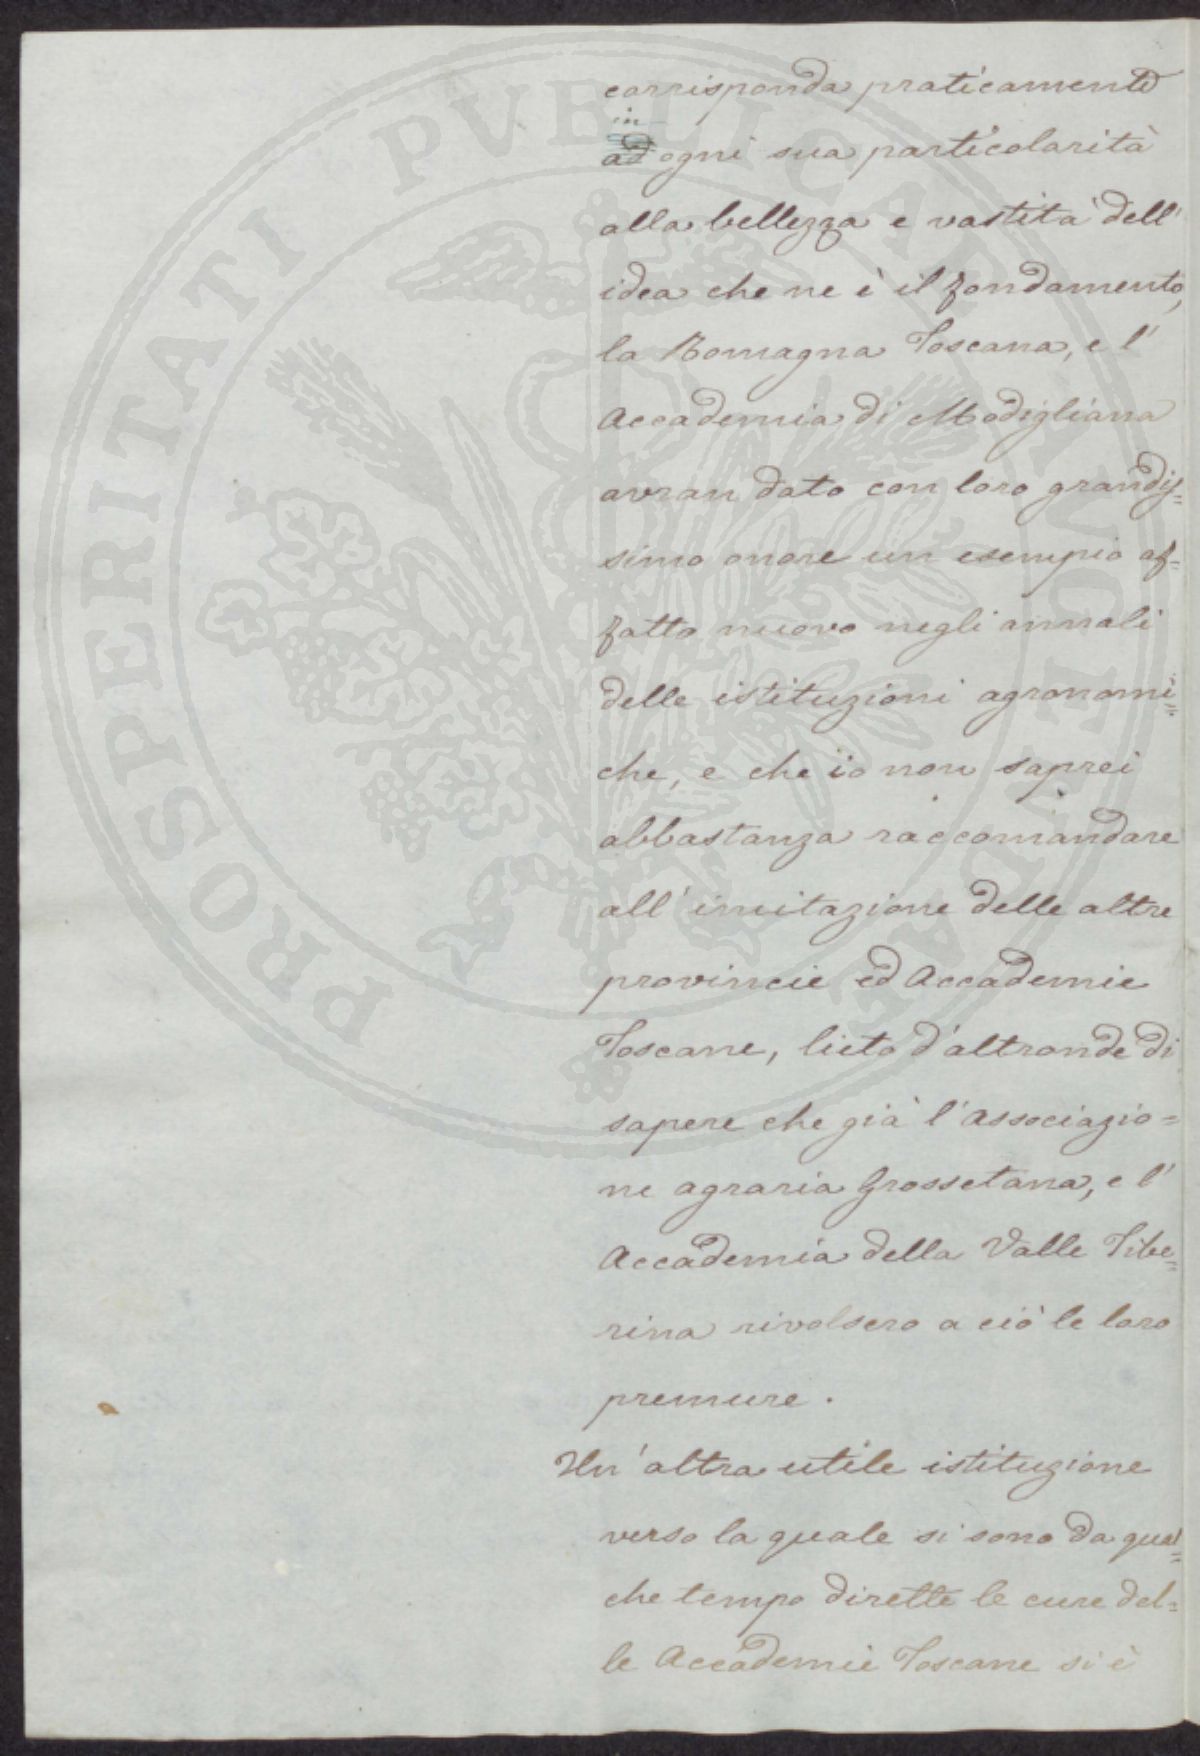 PROSPERITATI PVBLICAE AVGENDAE
corrisponda praticamente
in
ad ogni sua particolarità
alla bellezza e vastità dell'
idea che ne è il fondamento,
la Romagna Toscana, e l'
Accademia di Modigliana
avran dato con loro grandis=
simo onore un esempio af=
fatto nuovo negli annali
delle istituzioni agronomi=
che, e che io non saprei
abbastanza raccomandare
all'imitazione delle altre
provincie ed Accademie
Toscane, lieto d'altronde di
sapere che già l'Associazio=
ne agraria Grossetana, e l'
Accademia della Valle Tibe=
rina rivolsero a ciò le loro
premure.
Un'altra utile istituzione
verso la quale si sono da qual=
che tempo dirette le cure del=
le Accademie Toscane si è